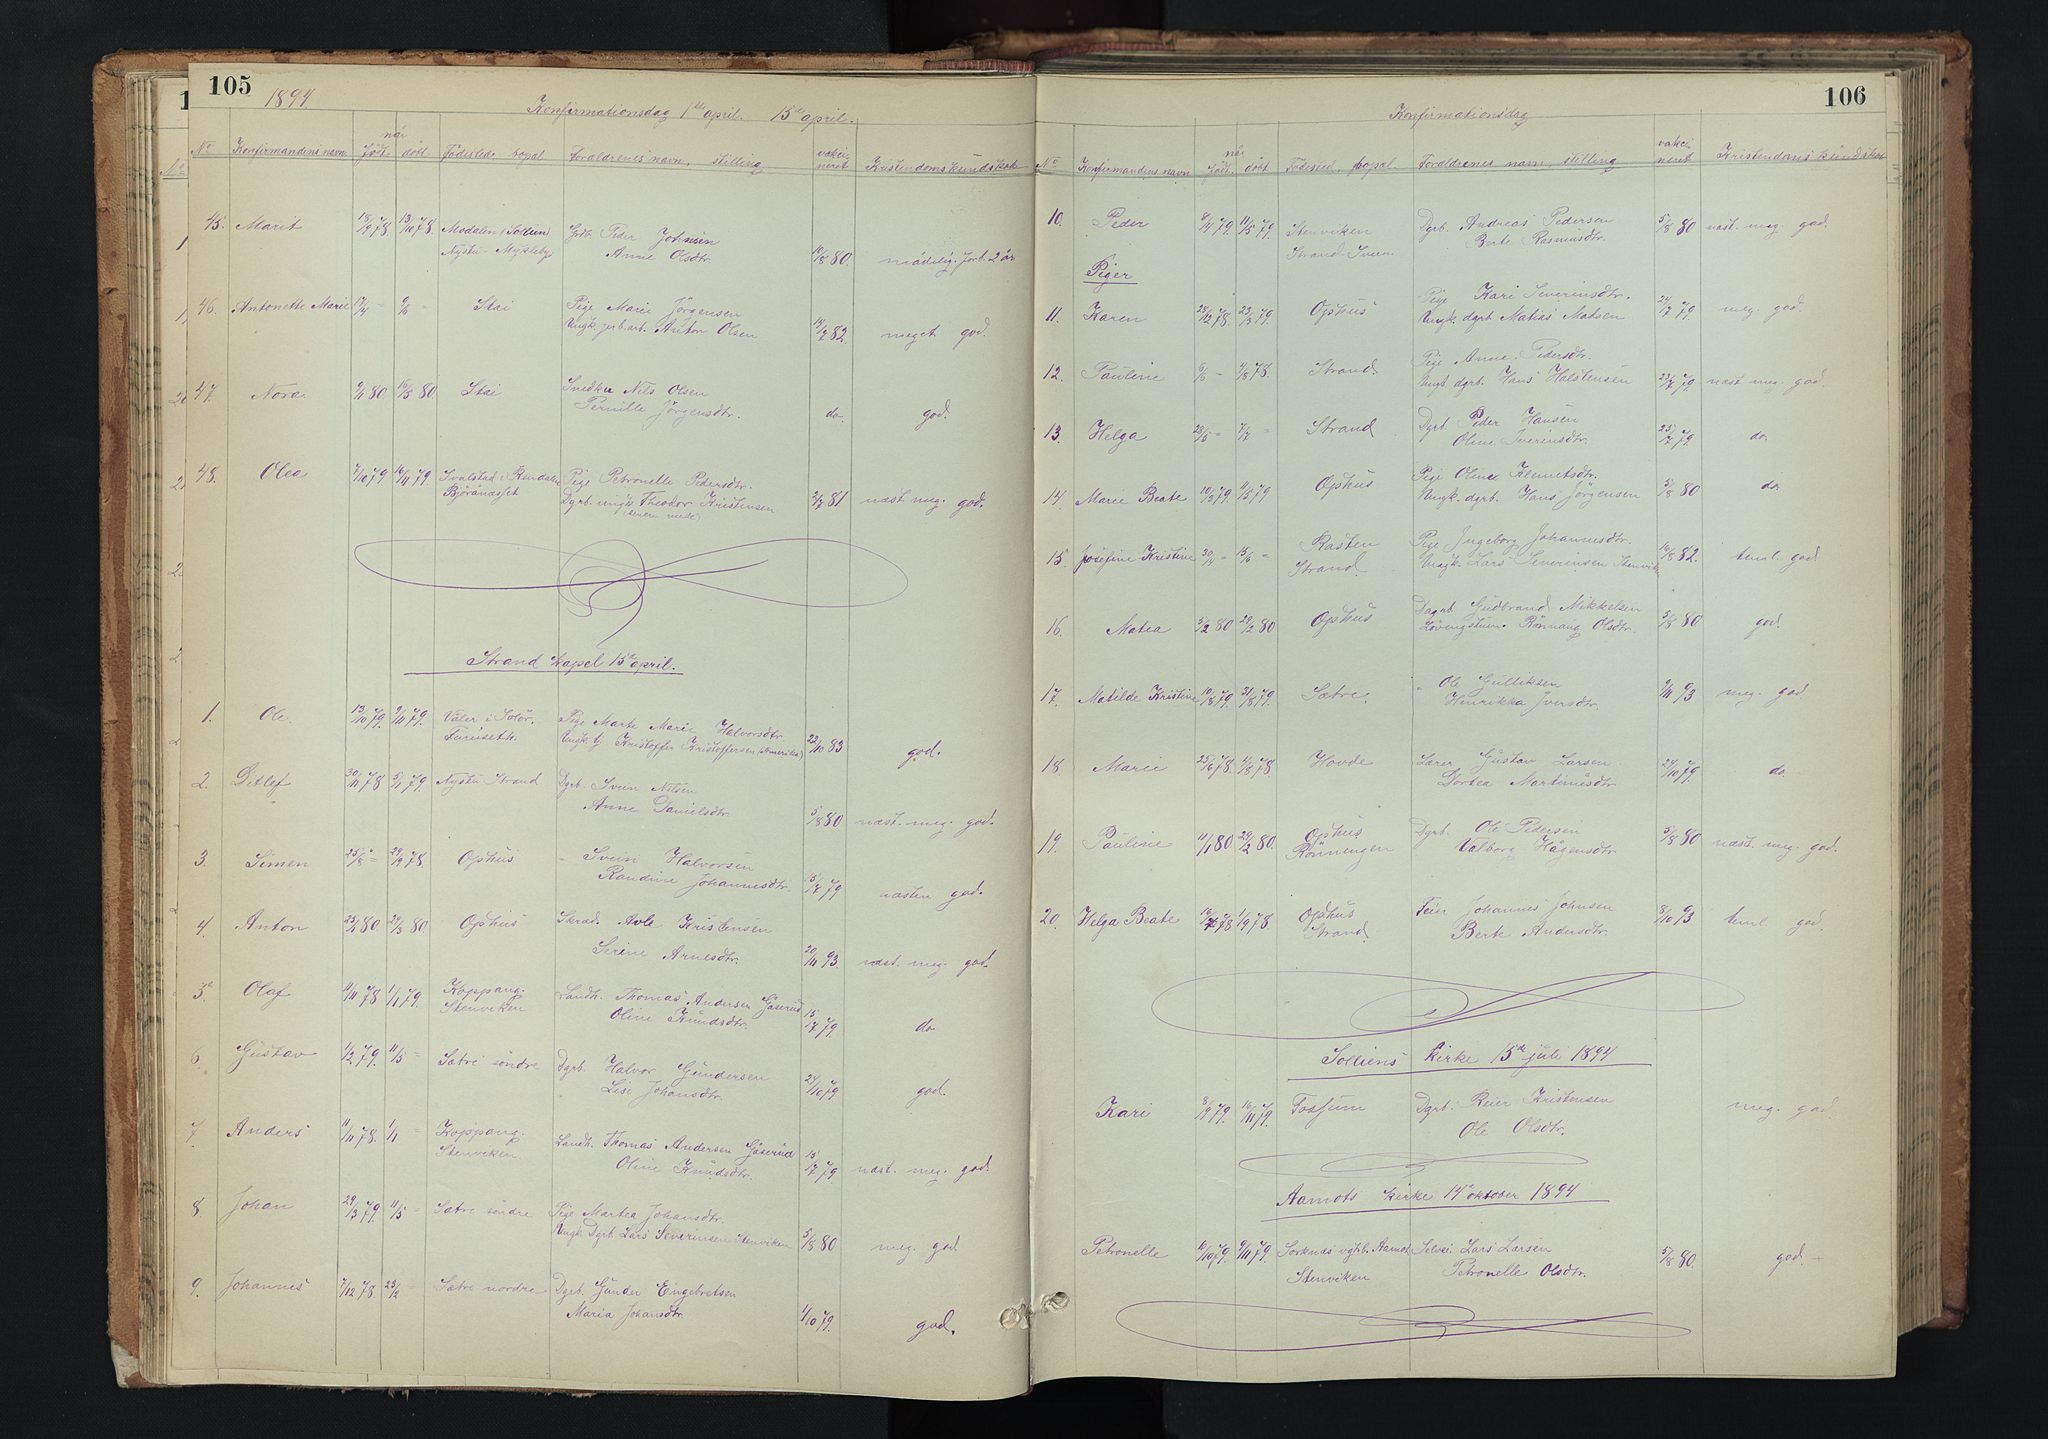 105
1894
Konfirmationsdag 1ste april. 15de april.
No Konfirmandens navn når født døbt Fødested, bopæl Forældrenes navn, stilling vakcineret Kristendomskundskab
45. Marit 18/9 78 13/10 78. Modalen (Sollien) Grdb. Peder Johnsen
Nystu - Mykleby Anne Olsdtr. 10/8 80. mådelig. forb. 2 år
46. Antonette Marie 17/4 = 9/6 = Stai Pige Marie Jörgensen
Ungk. jrb.arb. Anton Olsen 14/7 82. meget god.
47. Nora 9/1 80 16/5 80 Stai Snedker Nils Olsen
Pernille Jörgensdtr. do. god.
48. Olea 7/10 79 16/11 79. i Rendalen Pige Petronelle Pedersdtr.
Björanæsset Dgrb. ungk Theodor Kristensen 2/7 81 næst. meg. god.
Strand kapel 15de april.
1. Ole. 13/10 79. 9/11 79. Våler i Solör. Pige Marte Marie Halvorsdtr.
Furuseth. Ungk. tj. Kristoffer Kristoffersen (Amerika) 22/10 83 god.
2. Ditlef 30/11 78 5/1 79. Nystu Strand Dgrb. Svein Nilsen
Anne Danielsdtr. 5/8 80 næst. meg. god.
3. Simen 25/8 = 29/9 78. Ophus - Svein Halvorsen
Randine Johannesdtr. 15/7 79 næsten god.
4. Anton 23/1 80 29/3 80 Ophus Skrad. Avle Kristensen
Sirine Arnesdtr. 20/11 93. næst. meg. god.
5. Olaf 11/11 78 1/1 79. Koppang. Landh. Thomas Andersen Gåserud
Stenviken Oline Knudsdtr. 15/7 79 do
6 Gustav 1/2 79. 11/5 = Sætre söndre Dgrb. Halvor Gundersen
Lise Johansdtr. 24/10 79 god.
7. Anders 11/11 78. 1/1 Koppang. Landh. Thomas Andersen Gåserud
Stenviken. Oline Knudsdtr. 15/7 79 næst. meg. god.
8. Johan 29/3 79. 11/5 = Sætre söndre Pige Martea Johansdtr.
Ungk. Dgrb. Lars Severinsen Stenviken 5/8 80 meg. god
9. Johannes 7/12 78. 23/2 = Sætre nordre Dgrb. Gunder Engebretsen
Maria Johansdtr. 1/10 79. god.
106
Konfirmationsdag
No Konfirmandens navn når født. døbt Fødested, bopæl. Forældrenes navn, stilling vakcineret Kristendomskundskab
10. Peder 8/4 79. 11/5 79. Stenviken Dgrb. Andreas Pedersen 5/8 80 næst. meg. god.
Strand-Svein Berte Rasmusdtr.
Piger
11. Karen 28/12 78. 23/3 79. Ophus Pige Kari Severinsdtr. 24/7 79. meg. god.
Ungk. dgrb Matias Matsen
12. Pauline 6/6 - 4/8 78. Strand. Pige Anne Pedersdtr.
Ungk. dgrb. Hans Halstensen 23/7 79. næst meg. god.
13. Helga 28/5 = 7/7 = Strand Dgrb Peder Hansen 25/7 79. do.
Oline Iverinsdtr.
14. Marie Beate 10/3 79. 11/5 79 Ophus Pige Oline Klemetsdtr. 5/8 80 do.
Ungk. dgrb. Hans Jörgensen
15. Josefine Kristine 30/4 = 15/6 = Rasten Pige Ingeborg Johannesdtr. 16/8 82. teml god
Strand. Ungk. Lars Severinsen Stenvik
16. Matea 5/2 80 29/2 80 Ophus Dagrb Gudbrand Mikkelsen 5/8 80 god.
Rönnaug Olsdtr.
17. Matilde Kristine 10/8 79. 31/8 79. Sætre. " Ole Gulliksen 9/11 93 meg. god
Henrikka Iversdtr.
18. Marie 23/6 78. 4/8 78 Hovde Lærer Gustav Larsen 24/10 79. do
Dortea Martinusdtr.
19. Pauline 11/1 80 29/2 80. Ophus Dgrb. Ole Pedersen 5/8 80 næst. meg. god.
Rönningen Valborg Hågensdtr.
20. Helga Beate 16/7 78 1/9 78. Ophus Feier Johannes Johnsen 8/10 93 teml god.
Strand. Berte Andersdtr.
Solliens kirke 15de juli 1894
Kari 8/9 79. 16/11 79. Fossum Dgrb. Reier Kristensen meg. god.
Ole Olsdtr.
Aamots kirke 14de oktober 1894
Petronelle 10/10 79. 9/11 79. Sorknæs vgtrb. Aamot Selvei Lars Larsen 5/8 80. god.
Stenviken Petronelle Olsdtr.